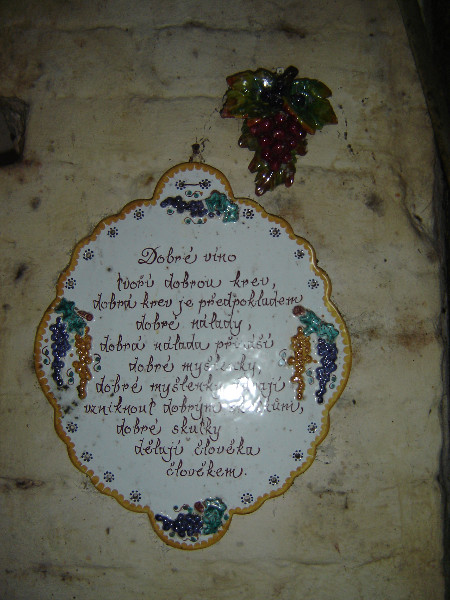 Dobré víno
tvoří dobrou krev,
dobrá krev je předpokladem
dobré nálady,
dobrá nálada přináší
dobré myšlenky,
dobré myšlenky dávají
vzniknout dobrým skutkům,
dobré skutky
dělají člověka
člověkem.